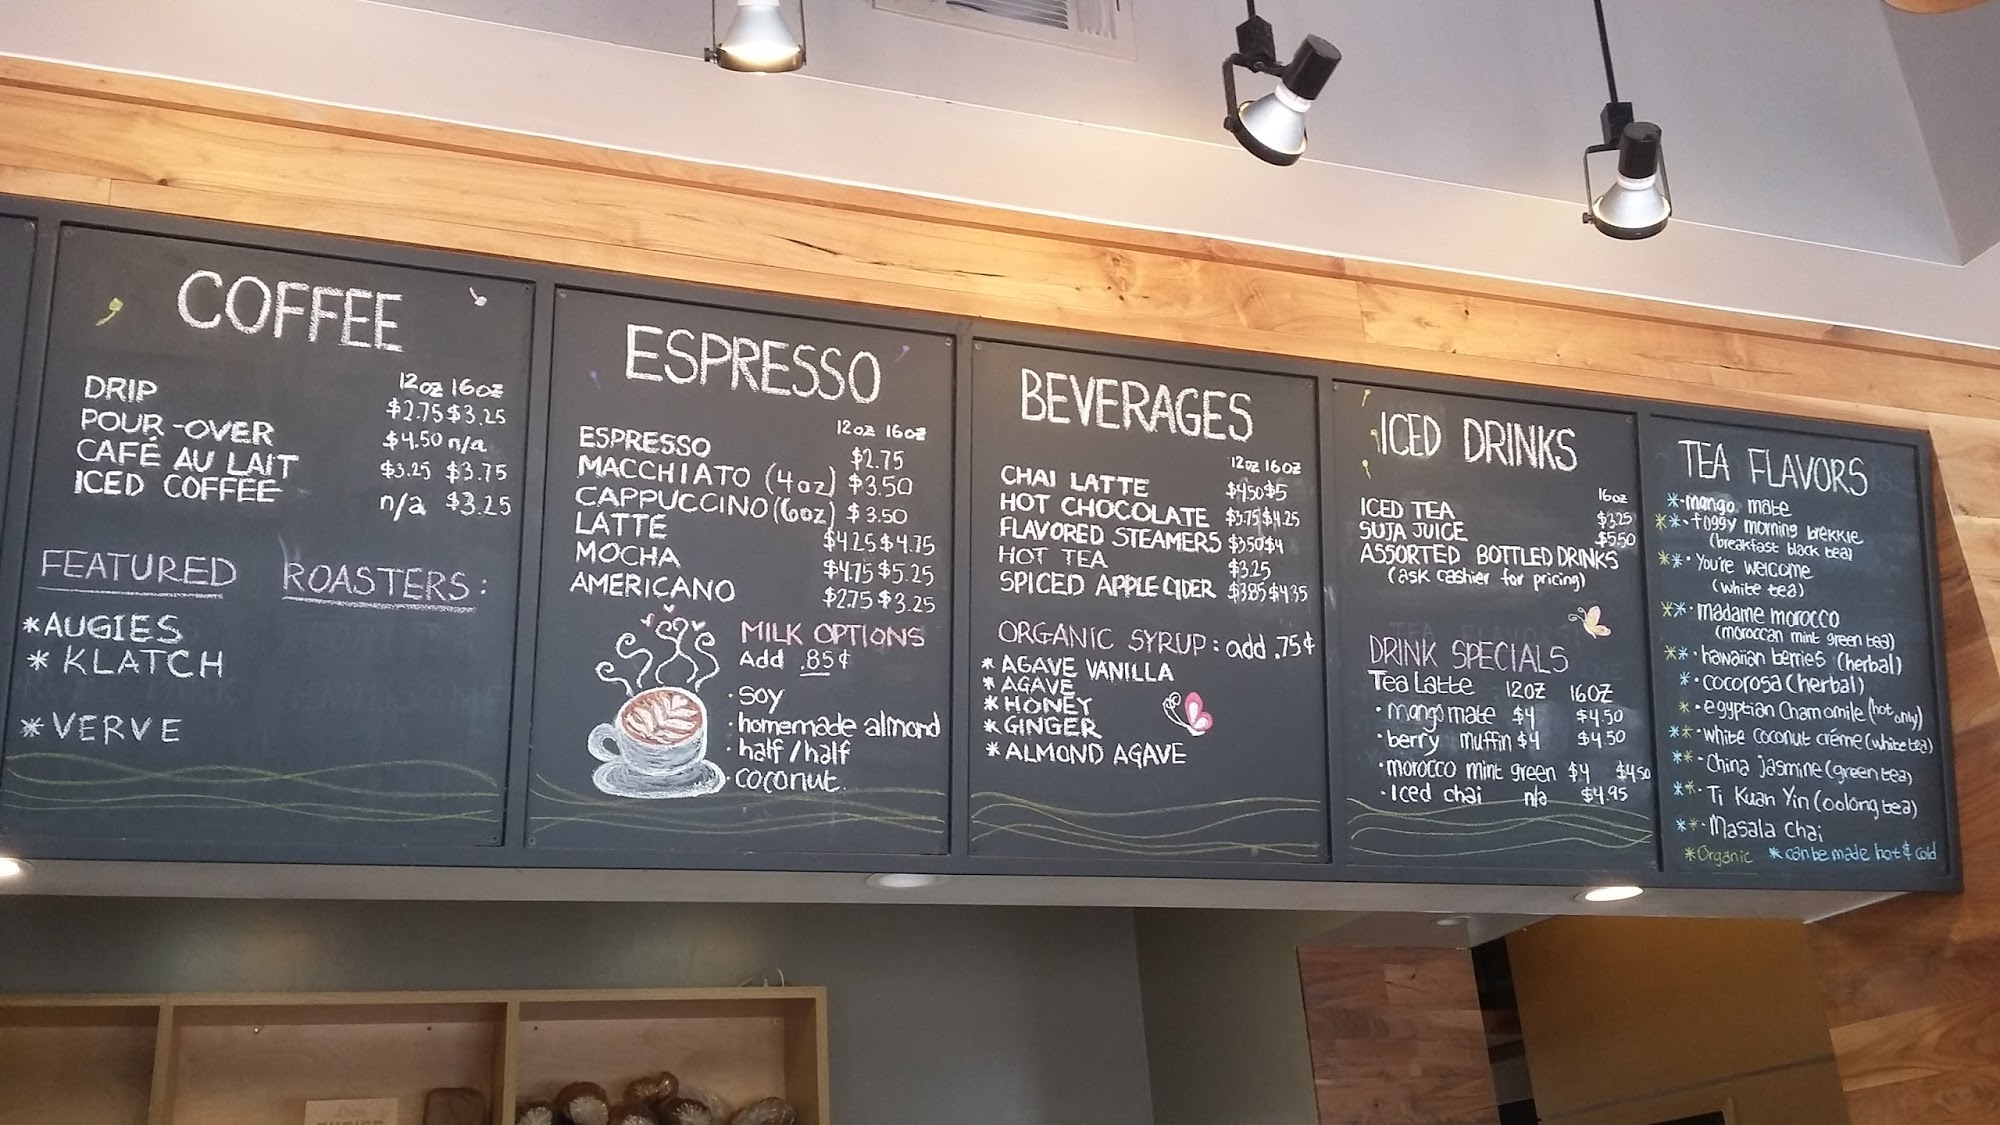 COFFEE
12oz 16oz
DRIP $2.75 $3.25
POUR-OVER $4.50 n/a
CAFÉ AU LAIT $3.25 $3.75
ICED COFFEE n/a $3.25
FEATURED ROASTERS:
*AUGIES
*KLATCH
*VERVE
ESPRESSO
12oz 16oz
ESPRESSO $2.75
MACCHIATO (4oz) $3.50
CAPPUCCINO (6oz) $3.50
LATTE $4.25 $4.75
MOCHA $4.75 $5.25
AMERICANO $2.75 $3.25
MILK OPTIONS
Add .85¢
·soy
·homemade almond
·half/half
·coconut
BEVERAGES
12oz 16oz
CHAI LATTE $4.50 $5
HOT CHOCOLATE $3.75 $4.25
FLAVORED STEAMERS $3.50 $4
HOT TEA $3.25
SPICED APPLE CIDER $3.85 $4.35
ORGANIC SYRUP: add .75¢
*AGAVE VANILLA
*AGAVE
*HONEY
*GINGER
*ALMOND AGAVE
ICED DRINKS
16oz
ICED TEA $3.25
SUJA JUICE $5.50
ASSORTED BOTTLED DRINKS
(ask cashier for pricing)
DRINK SPECIALS
Tea Latte 12OZ 16OZ
·mango mate $4 $4.50
·berry muffin $4 $4.50
·morocco mint green $4 $4.50
·Iced chai n/a $4.95
TEA FLAVORS
*·mango mate
**·foggy morning brekkie
(breakfast black tea)
**·You're welcome
(white tea)
**·madame morocco
(moroccan mint green tea)
**·hawaiian berries (herbal)
*·cocorosa (herbal)
*·egyptian Chamomile (hot only)
**·white coconut créme (white tea)
**·China jasmine (green tea)
**·Ti Kuan Yin (oolong tea)
**·Masala Chai
*Organic *can be made hot & cold